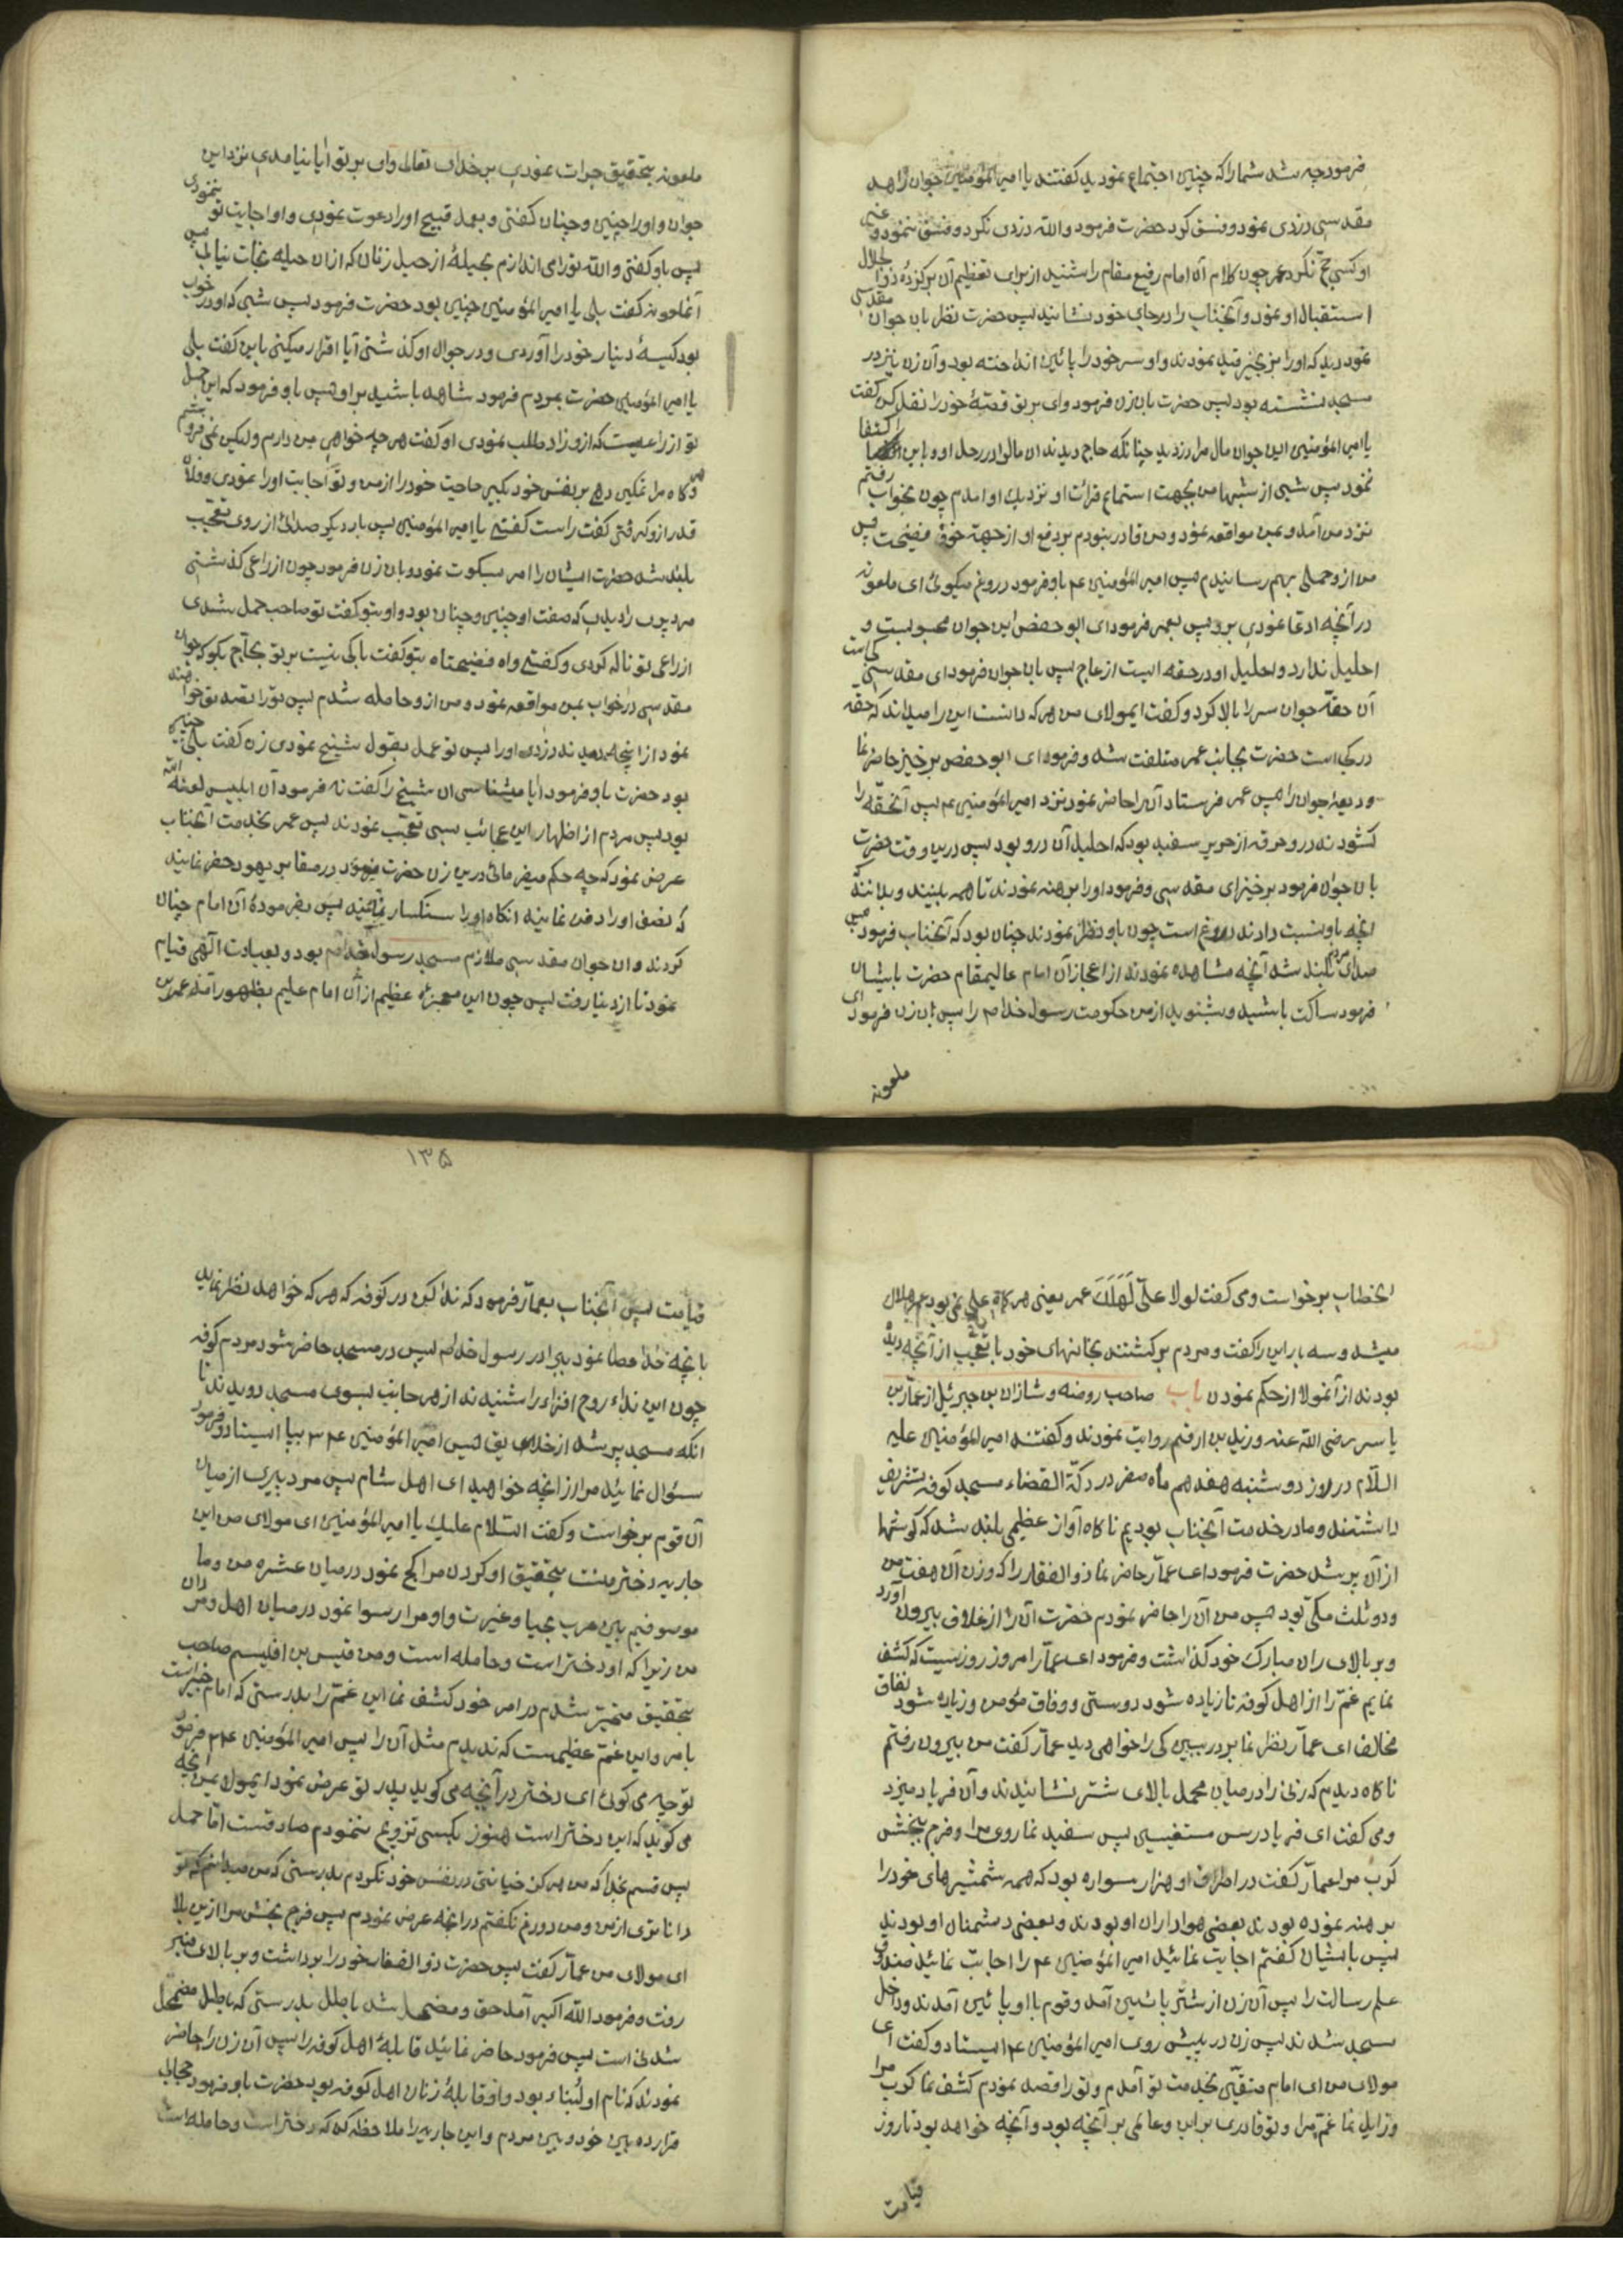 فرمود چه شد شما را که چنین اجتماع نمودید گفتند یا امیرالمؤمنین جوان زاهد
مقدسی دزدی نمود و فسق کرد حضرت فرمود والله دزدی نکرد و فسق ننمود و غیر
او کسی حج نکرد عمر چون کلام آن امام رفیع مقام را شنید از برای تعظیم آن برکزیدهٔ ذوالجلال
استقبال او نمود و آنجناب را در جای خود نشانید پس حضرت نظر بان جوان مقدسی
نمود دید که او را بزنجیر قید نمودند و او سر خود را پائین انداخته بود و آن زن نیز در
مسجد نشسته بود پس حضرت بان زن فرمود وای بر تو قصهٔ خود را نقل کن گفت
یا امیرالمؤمنین این جوان مال مرا دزدید چنانکه حاج دیدند ان مال را در رحل او و باین اکتفا
ننمود پس شبی از شبها من بجهت استماع قرائت او نزدیک او امدم چون بخواب رفتم
نزد من آمد و بمن مواقعه نمود و من قادر نبودم بر دفع او از جهة خوف فضیحت پس
من از و حملی بهم رسانیدم پس امیرالمؤمنین ع م باو فرمود دروغ میگوئی ای ملعونه
در آنچه ادعا نمودی بر و پس بعمر فرمود ای ابو حفص این جوان مجبوبست و
احلیل ندارد و احلیل او در حقه ایست از عاج پس بان جوان فرمود ای مقدسی کجاست
آن حقه جوان سر را بالا کرد و گفت ایمولای من هر که دانست این را میداند که حقه
در کجاست حضرت بجانب عمر متلفت شد و فرمود ای ابو حفص برخیز حاضر نما
ودیعهٔ جوان را پس عمر فرستاد آن را حاضر نمود نزد امیرالمؤمنین ع م پس آنحقه را
کشودند در و خرقه از حریر سفید بود که احلیل آن در و بود پس درین وقت حضرت
بان جوان فرمود برخیز ای مقدسی و فرمود او را برهنه نمودند تا همه ببینند و بدانند که
انچه باو نسبت دادند دروغ است چون باو نظر نمودند چنان بود که آنجناب فرمود پس
صدای مردم بلند شد آنچه مشاهده نمودند از اعجاز آن امام عالیمقام حضرت بایشان
فرمود ساکت باشید و بشنوید از من حکومت رسول خدا ص را پس بان زن فرمود ای
ملعونه
ملعونه بتحقیق جرات نمودی بر خدای تعالی وای بر تو ایا نیامدی نزد این
جوان و او را چنین و چنان گفتی و بعمل قبیح او را دعوت نمودی و او اجابت تو ننمودی
پس باو گفتی والله تو را می اندازم بحیلهٔ از حیل زنان که از ان حیله نجات نیابی پس
آنملعونه گفت بلی یا امیرالمؤمنین چنین بود حضرت فرمود پس شبی که او در خواب
بود کیسهٔ دینار خود را آوردی و در جوال او گذاشتی آیا اقرار میکنی باین گفت بلی
یا امیرالمؤمنین حضرت بمردم فرمود شاهد باشید بر او پس باو فرمود که این حمل
تو از راعیست که از و زاد طلب نمودی او گفت هر چه خواهی من دارم ولیکن نمی فروشم
و کاه مرا تمکین دهی بر نفس خود بکیر حاجت خود را از من و تو اجابت او را نمودی و فلان
قدر از و گرفتی گفت راست گفتی یا امیرالمؤمنین پس بار دیگر صدائی از روی تعجب
بلند شد حضرت ایشان را امر بسکوت نمود و بان زن فرمود چون از راعی گذشتی
مرد پیری را دیدی که صفت او چنین و چنان بود و او بتو گفت تو صاحب حمل شدی
از راعی تو ناله کردی و گفتی واه فضیحتاه بتو گفت باکی نیست بر تو بحاج بکو که جوان
مقدسی در خواب بمن مواقعه نمود و من از و حامله شدم پس تو را تصدیق خواهند
نمود از انچه دیدند دزدی او را پس تو عمل بقول شیخ نمودی زن گفت بلی چنین
بود حضرت باو فرمود ایا میشناسی ان شیخ را گفت نه فرمود آن ابلیس لعنة الله
بود پس مردم از اظهار این عجائب بسی تعجب نمودند پس عمر بخدمت آنجناب
عرض نمود که چه حکم میفرمائی درین زن حضرت فرمود در مقابر یهود حفر نمایند
که نصف او را دفن نمایند انکاه او را سنکسار نمایند پس بفرمودهٔ آن امام چنان
کردند و ان جوان مقدسی ملازم مسجد رسول خدا ص بود و بعبادت الهی قیام
نمود تا از دنیا رفت پس چون این معجزهٔ عظیم از آن امام علیم بظهور آمد عمر بن
الخطاب برخواست و می گفت لولا علیّ لَهَلَکَ عمر یعنی هر کاه علی نمی بود عمر هلاک
میشد و سه بار این را گفت و مردم برگشتند بخانهای خود با تعجب از آنچه دیده
بودند از آنمولا از حکم نمودن باب صاحب روضه و شاذان بن جبرئیل از عمار بن
یاسر رضی الله عنه و زید بن ارقم روایت نمودند و گفتند امیرالمؤمنین علیه
السلام در روز دوشنبه هفدهم ماه صفر در دکة القضاء مسجد کوفه تشریف
داشتند و ما در خدمت آنجناب بودیم ناکاه آواز عظیمی بلند شد که کوشها
از آن پر شد حضرت فرمود ای عمار حاضر نما ذوالفقار را که وزن آن هفت من
و دو ثلث مکی بود پس من آن را حاضر نمودم حضرت آن را از غلاف بیرون آورد
و بر بالای ران مبارک خود گذاشت و فرمود ای عمار امروز روزیست که کشف
نمایم غم را از اهل کوفه تا زیاده شود دوستی و وفاق مؤمن و زیاده شود نفاق
مخالف ای عمار نظر نما بر در ببین کی را خواهی دید عمار گفت من بیرون رفتم
ناکاه دیدم که زنی را در میان محمل بالای شتر نشانیدند و آن فریاد میزد
و می گفت ای فریادرس مستغیثین پس سفید نما روی مرا و فرج ببخش
کرب مرا عمار گفت در اطراف او هزار سواره بود که همه شمشیرهای خود را
برهنه نموده بودند بعضی هواداران او بودند و بعضی دشمنان او بودند
پس بایشان گفتم اجابت نمائید امیرالمؤمنین ع م را اجابت نمائید صندوق
علم رسالت را پس آن زن از شتر پائین آمد و قوم با او پائین آمدند و داخل
مسجد شدند پس زن در پیش روی امیرالمؤمنین ع م ایستاد و گفت ای
مولای من ای امام متقین بخدمت تو آمدم و تو را قصد نمودم کشف نما کرب مرا
و زایل نما غم مرا و تو قادری بر این و عالمی بر آنچه بود و آنچه خواهد بود تا روز
قیامت
۱۳۵
قیامت پس آنجناب بعمار فرمود که ندا کن در کوفه که هر که خواهد نظر نماید
بانچه خدا عطا نمود ببرادر رسول خدا ص پس در مسجد حاضر شود مردم کوفه
چون این نداء روح افزاء را شنیدند از هر جانب بسوی مسجد دویدند تا
انکه مسجد پر شد از خلایق پس امیرالمؤمنین ع م بپا ایستاد و فرمود
سئوال نمائید مرا از انچه خواهید ای اهل شام پس مرد پیری از میان
آن قوم برخواست و گفت السلام علیک یا امیرالمؤمنین ای مولای من این
جاریه دختر منست بتحقیق او کردن مرا کج نمود در میان عشیره من و ما
موسوفیم بین عرب بحیا و غیرت و او مرا رسوا نمود در میان اهل و مردان
من زیرا که او دختر است و حامله است و من قیس بن افلیسم صاحب
بتحقیق متحیر شدم در امر خود کشف نما این غم را بدرستی که امام خبیر است
بامر و این غم عظیمست که ندیدم مثل آن را پس امیرالمؤمنین ع م فرمود
تو چه می گوئی ای دختر در آنچه می گوید پدر تو عرض نمود ایمولای من انچه
می گوید که این دختر است هنوز بکسی تزویج ننمودم صادقست اما حمل
پس قسم بخدا که من هرکز خیانتی در نفس خود نکردم بدرستی که من میدانم که تو
داناتری از من و من دروغ نگفتم در انچه عرض نمودم پس فرج بخش مرا ازین بلا
ای مولای من عمار گفت پس حضرت ذوالفقار خود را برداشت و بر بالای منبر
رفت و فرمود الله اکبر آمد حق و مضمحل شد باطل بدرستی که باطل مضمحل
شدنی است پس فرمود حاضر نمائید قابلهٔ اهل کوفه را پس آن زن را حاضر
نمودند که نام او لُبناء بود و او قابلهٔ زنان اهل کوفه بود حضرت باو فرمود حجابی
قرار ده بین خود و بین مردم و این جاریه را ملاحظه کن که دختر است و حامله است